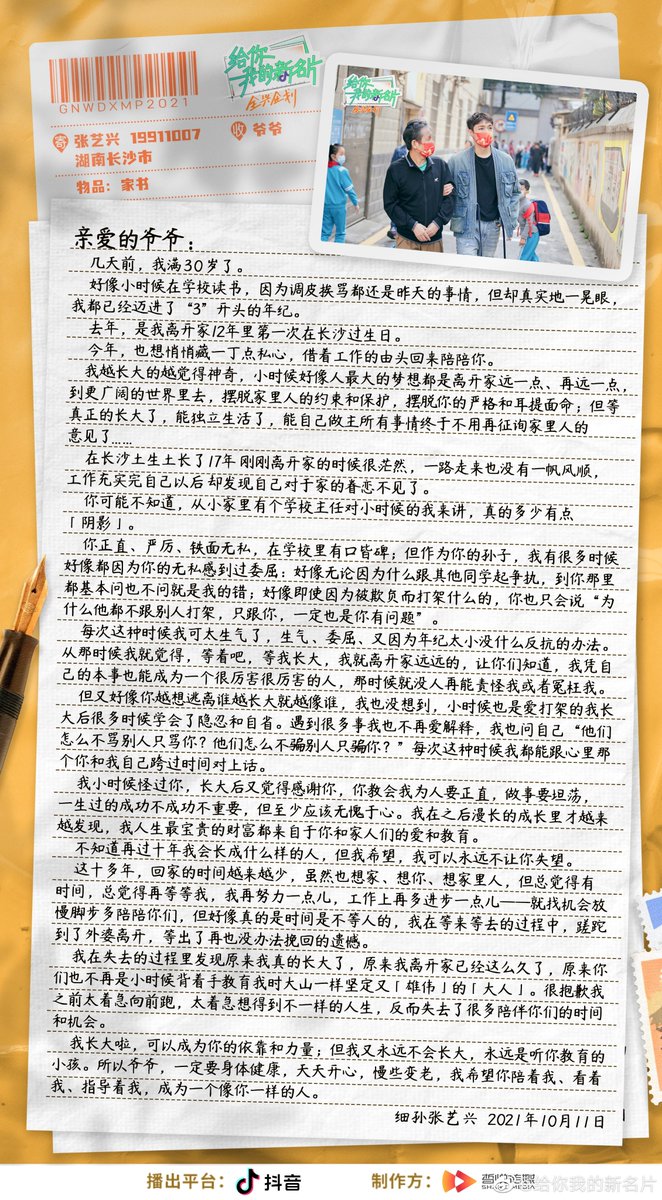 给你
我的新名片
GNWDXMP2021
寄 张艺兴 19911007
收 爷爷
湖南长沙市
物品：家书
给你
我的新名片
亲爱的爷爷：
几天前，我满30岁了。
好像小时候在学校读书，因为调皮挨骂都还是昨天的事情，但却真实地一晃眼，
我都已经迈进了“3”开头的年纪。
去年，是我离开家12年里第一次在长沙过生日。
今年，也想悄悄藏一丁点私心，借着工作的由头回来陪陪你。
我越长大的越觉得神奇，小时候好像人最大的梦想都是离开家远一点、再远一点，
到更广阔的世界里去，摆脱家里人的约束和保护，摆脱你的严格和耳提面命；但等
真正的长大了，能独立生活了，能自己做主所有事情终于不用再征询家里人的
意见了……
在长沙土生土长了17年 刚刚离开家的时候很茫然，一路走来也没有一帆风顺，
工作充实完自己以后 却发现自己对于家的眷恋不见了。
你可能不知道，从小家里有个学校主任对小时候的我来讲，真的多少有点
「阴影」。
你正直、严厉、铁面无私，在学校里有口皆碑；但作为你的孙子，我有很多时候
好像都因为你的无私感到过委屈：好像无论因为什么跟其他同学起争执，到你那里
都基本问也不问就是我的错；好像即使因为被欺负而打架什么的，你也只会说“为
什么他都不跟别人打架，只跟你，一定也是你有问题”。
每次这种时候我可太生气了，生气、委屈、又因为年纪太小没什么反抗的办法。
从那时候我就觉得，等着吧，等我长大，我就离开家远远的，让你们知道，我凭自
己的本事也能成为一个很厉害很厉害的人，那时候就没人再能责怪我或者冤枉我。
但又好像你越想逃离谁越长大就越像谁，我也没想到，小时候也是爱打架的我长
大后很多时候学会了隐忍和自省。遇到很多事我也不再爱解释，我也问自己“他们
怎么不骂别人只骂你？他们怎么不骗别人只骗你？”每次这种时候我都能跟心里那
个你和我自己跨过时间对上话。
我小时候怪过你，长大后又觉得感谢你，你教会我为人要正直，做事要坦荡，
一生过的成功不成功不重要，但至少应该无愧于心。我在之后漫长的成长里才越来
越发现，我人生最宝贵的财富都来自于你和家人们的爱和教育。
不知道再过十年我会长成什么样的人，但我希望，我可以永远不让你失望。
这十多年，回家的时间越来越少，虽然也想家、想你、想家里人，但总觉得有
时间，总觉得再等等我，我再努力一点儿，工作上再多进步一点儿——就找机会放
慢脚步多陪陪你们，但好像真的是时间是不等人的，我在等来等去的过程中，蹉跎
到了外婆离开，等出了再也没办法挽回的遗憾。
我在失去的过程里发现原来我真的长大了，原来我离开家已经这么久了，原来你
们也不再是小时候背着手教育我时大山一样坚定又「雄伟」的「大人」。很抱歉我
之前太着急向前跑，太着急想得到不一样的人生，反而失去了很多陪伴你们的时间
和机会。
我长大啦，可以成为你的依靠和力量；但我又永远不会长大，永远是听你教育的
小孩。所以爷爷，一定要身体健康，天天开心，慢些变老，我希望你陪着我、看着
我、指导着我，成为一个像你一样的人。
细孙张艺兴 2021年10月11日
播出平台： 抖音 制作方：
@给你我的新名片